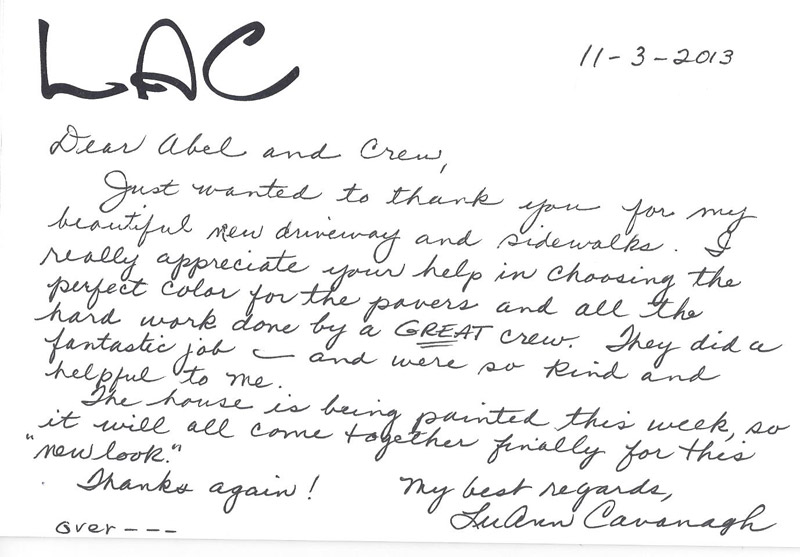 LAC
11-3-2013
Dear Abel and Crew,
Just wanted to thank you for my
beautiful new driveway and sidewalks. I
really appreciate your help in choosing the
perfect color for the pavers and all the
hard work done by a GREAT crew. They did a
fantastic job — and were so kind and
helpful to me.
The house is being painted this week, so
it will all come together finally for this
"new look."
Thanks again!
My best regards,
LuAnn Cavanagh
over ---